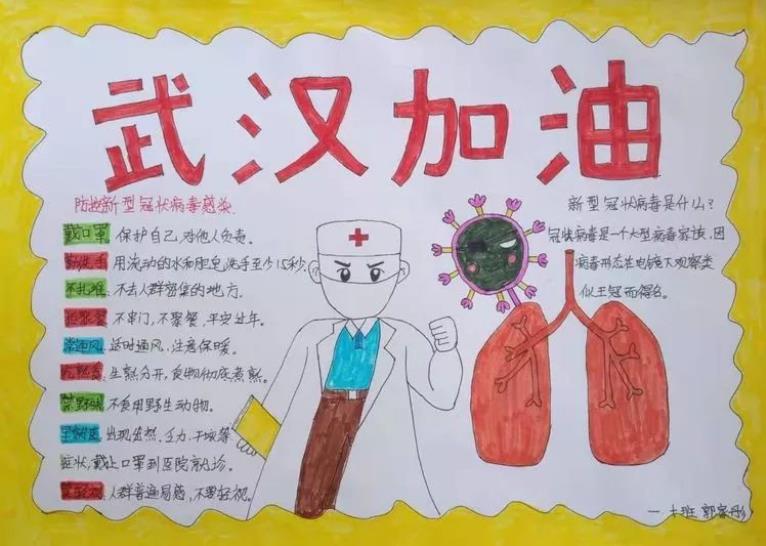 武汉加油
防控新型冠状病毒感染
戴口罩 保护自己,对他人负责。
勤洗手 用流动的水和肥皂洗手至少15秒
不扎堆 不去人群密集的地方。
拒聚餐 不串门,不聚餐,平安过年。
常通风 适时通风,注意保暖。
吃熟食 生熟分开,食物彻底煮熟。
禁野味 不食用野生动物。
早就医 出现发热、乏力、干咳等
症状,戴上口罩到医院就诊。
莫轻视 人群普遍易感,不要轻视。
新型冠状病毒是什么?
冠状病毒是一个大型病毒家族,因
病毒形态在电镜下观察类
似王冠而得名。
班 郭家彤